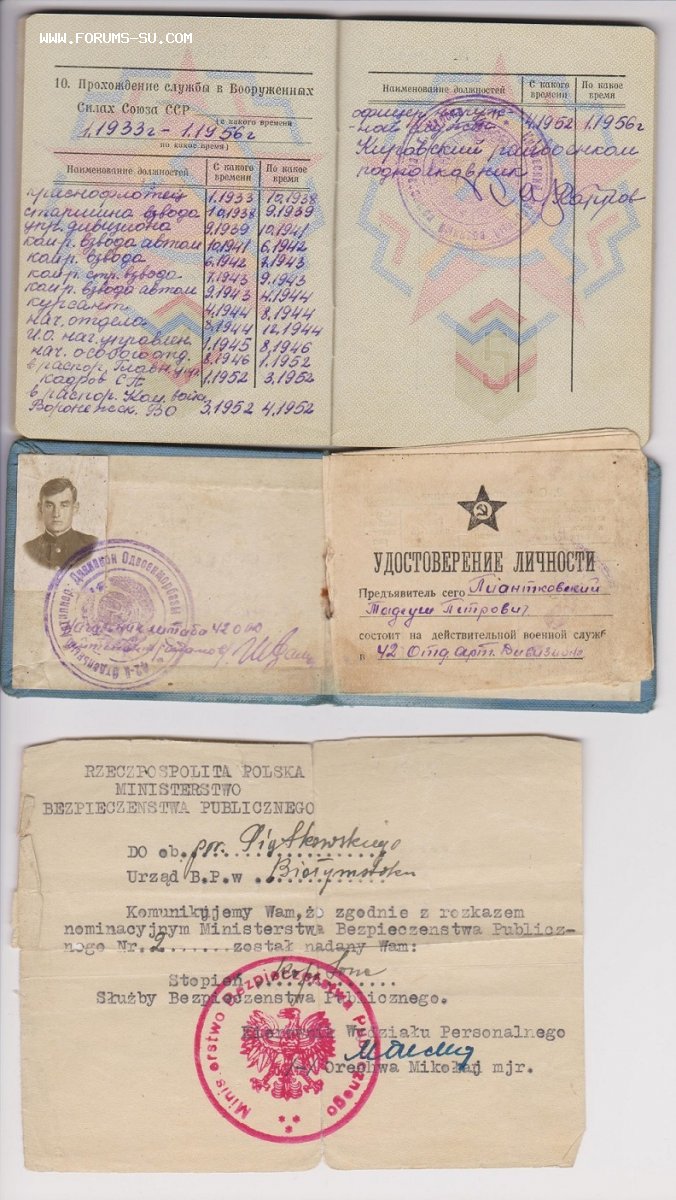 www.forums-su.com
10. Прохождение службы в Вооруженных
Силах Союза ССР
(с какого времени
1.1933г – 1.1956г
по какое время)
Наименование должностей С какого времени По какое время
краснофлотец 1.1933 10.1938
старшина взвода 10.1938 9.1939
упр. дивизиона 9.1939 10.1941
ком-р. взвода автом 10.1941 6.1942
ком-р. взвода 6.1942 1943
ком-р. стр. взвода 1943 9.1943
ком-р. взвода автом 9.1943 4.1944
курсант 4.1944 8.1944
нач. отдела 8.1944 12.1944
И.О. нач. управлен. 1.1945 8.1946
нач. особого отд. 8.1946 1.1952
в распор. Главн. упр.
кадров СА 1.1952 3.1952
в распор. Ком. войск
Воронежск. ВО 3.1952 4.1952
Наименование должностей С какого времени По какое время
офицер
4.1952 1.1956г
Кировский райвоенком
подполковник
УДОСТОВЕРЕНИЕ ЛИЧНОСТИ
Предъявитель сего Пиантковский
Тадеуш Петрович
состоит на действительной военной служб
в 42 Отд. Арт. Дивизионе
Начальник штаба 42 ОАД
RZECZPOSPOLITA POLSKA
MINISTERSTWO
BEZPIECZENSTWA PUBLICZNEGO
DO ob. por. Piątkowskiego
Urząd B.P.w Białymstoku
Komunikujemy Wam,że zgodnie z rozkazem
nominacyjnym Ministerstwa Bezpieczenstwa Publicz-
nego Nr. 2 ....... został nadany Wam:
Stopień kapitana
Służby Bezpieczenstwa Publicznego.
Kierownik Wydziału Personalnego
Orechwa Mikołaj mjr.
Ministerstwo Bezpieczenstwa Publicznego